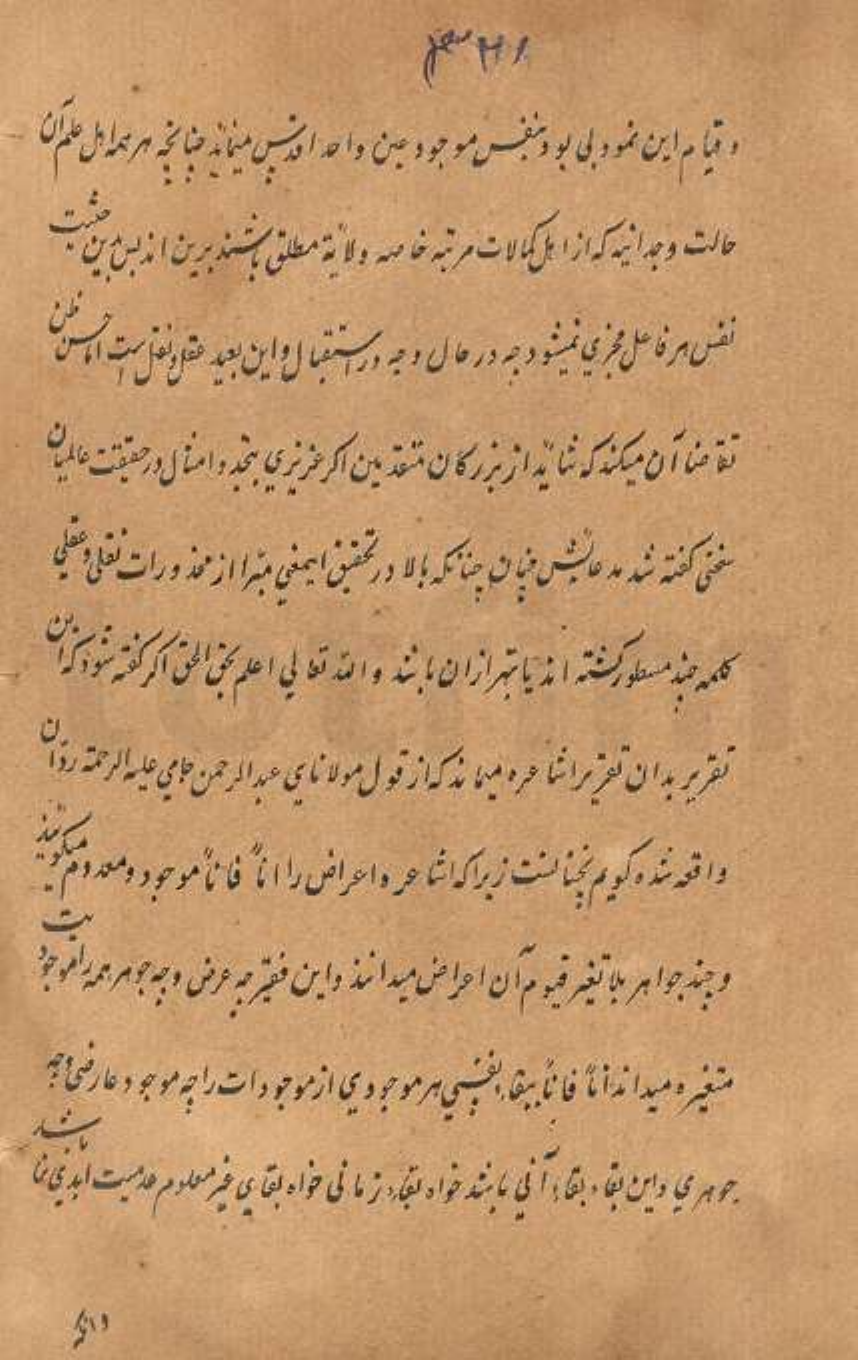 و قیام این نمود بی بود بنفس موجود عین واحد اقدس مینماید چنانچه بر همه اهل علم آن
حالت وجدانیه که از اهل کمالات مرتبه خاصه ولایة مطلق باشند برین اند پس بدین حیثیت
نفس هر فاعل مجزی نمیشود چه در حال و چه در استقبال و این بعید عقل و نقل است اما حسن ظن
تقاضا آن میکند که شاید از بزرکان متقدمین اکر عزیزی بتجدد امثال در حقیقت عالمیان
سخنی کفته شد مدعایش چنان چنانکه بالا در تحقیق ایمعنی مبرا از محذورات نقلی و عقلی
کلمه چند مسطور کشته اند یا بهتر ازان باشند و الله تعالی اعلم بحق الحق اکر کفته شود که این
تقریر بدان تقریر اشاعره میماند که از قول مولانای عبد الرحمن جامی علیه الرحمة رد آن
واقعه شده کویم نچنانست زیراکه اشاعره اعراض را اناً فاناً موجود و معدوم میکویند
و چند جواهر بلا تغیر قیوم آن اعراض میدانند و این فقیر چه عرض و چه جوهر همه را موجود
متغیره میداند اناً فاناً ببقاء نفسی هر موجودی از موجودات را چه موجود عارضی و چه
جوهری و این بقاء بقاء آنی باشد خواه بقاء زمانی خواه بقای غیر معلوم عدمیت ابدی باشد